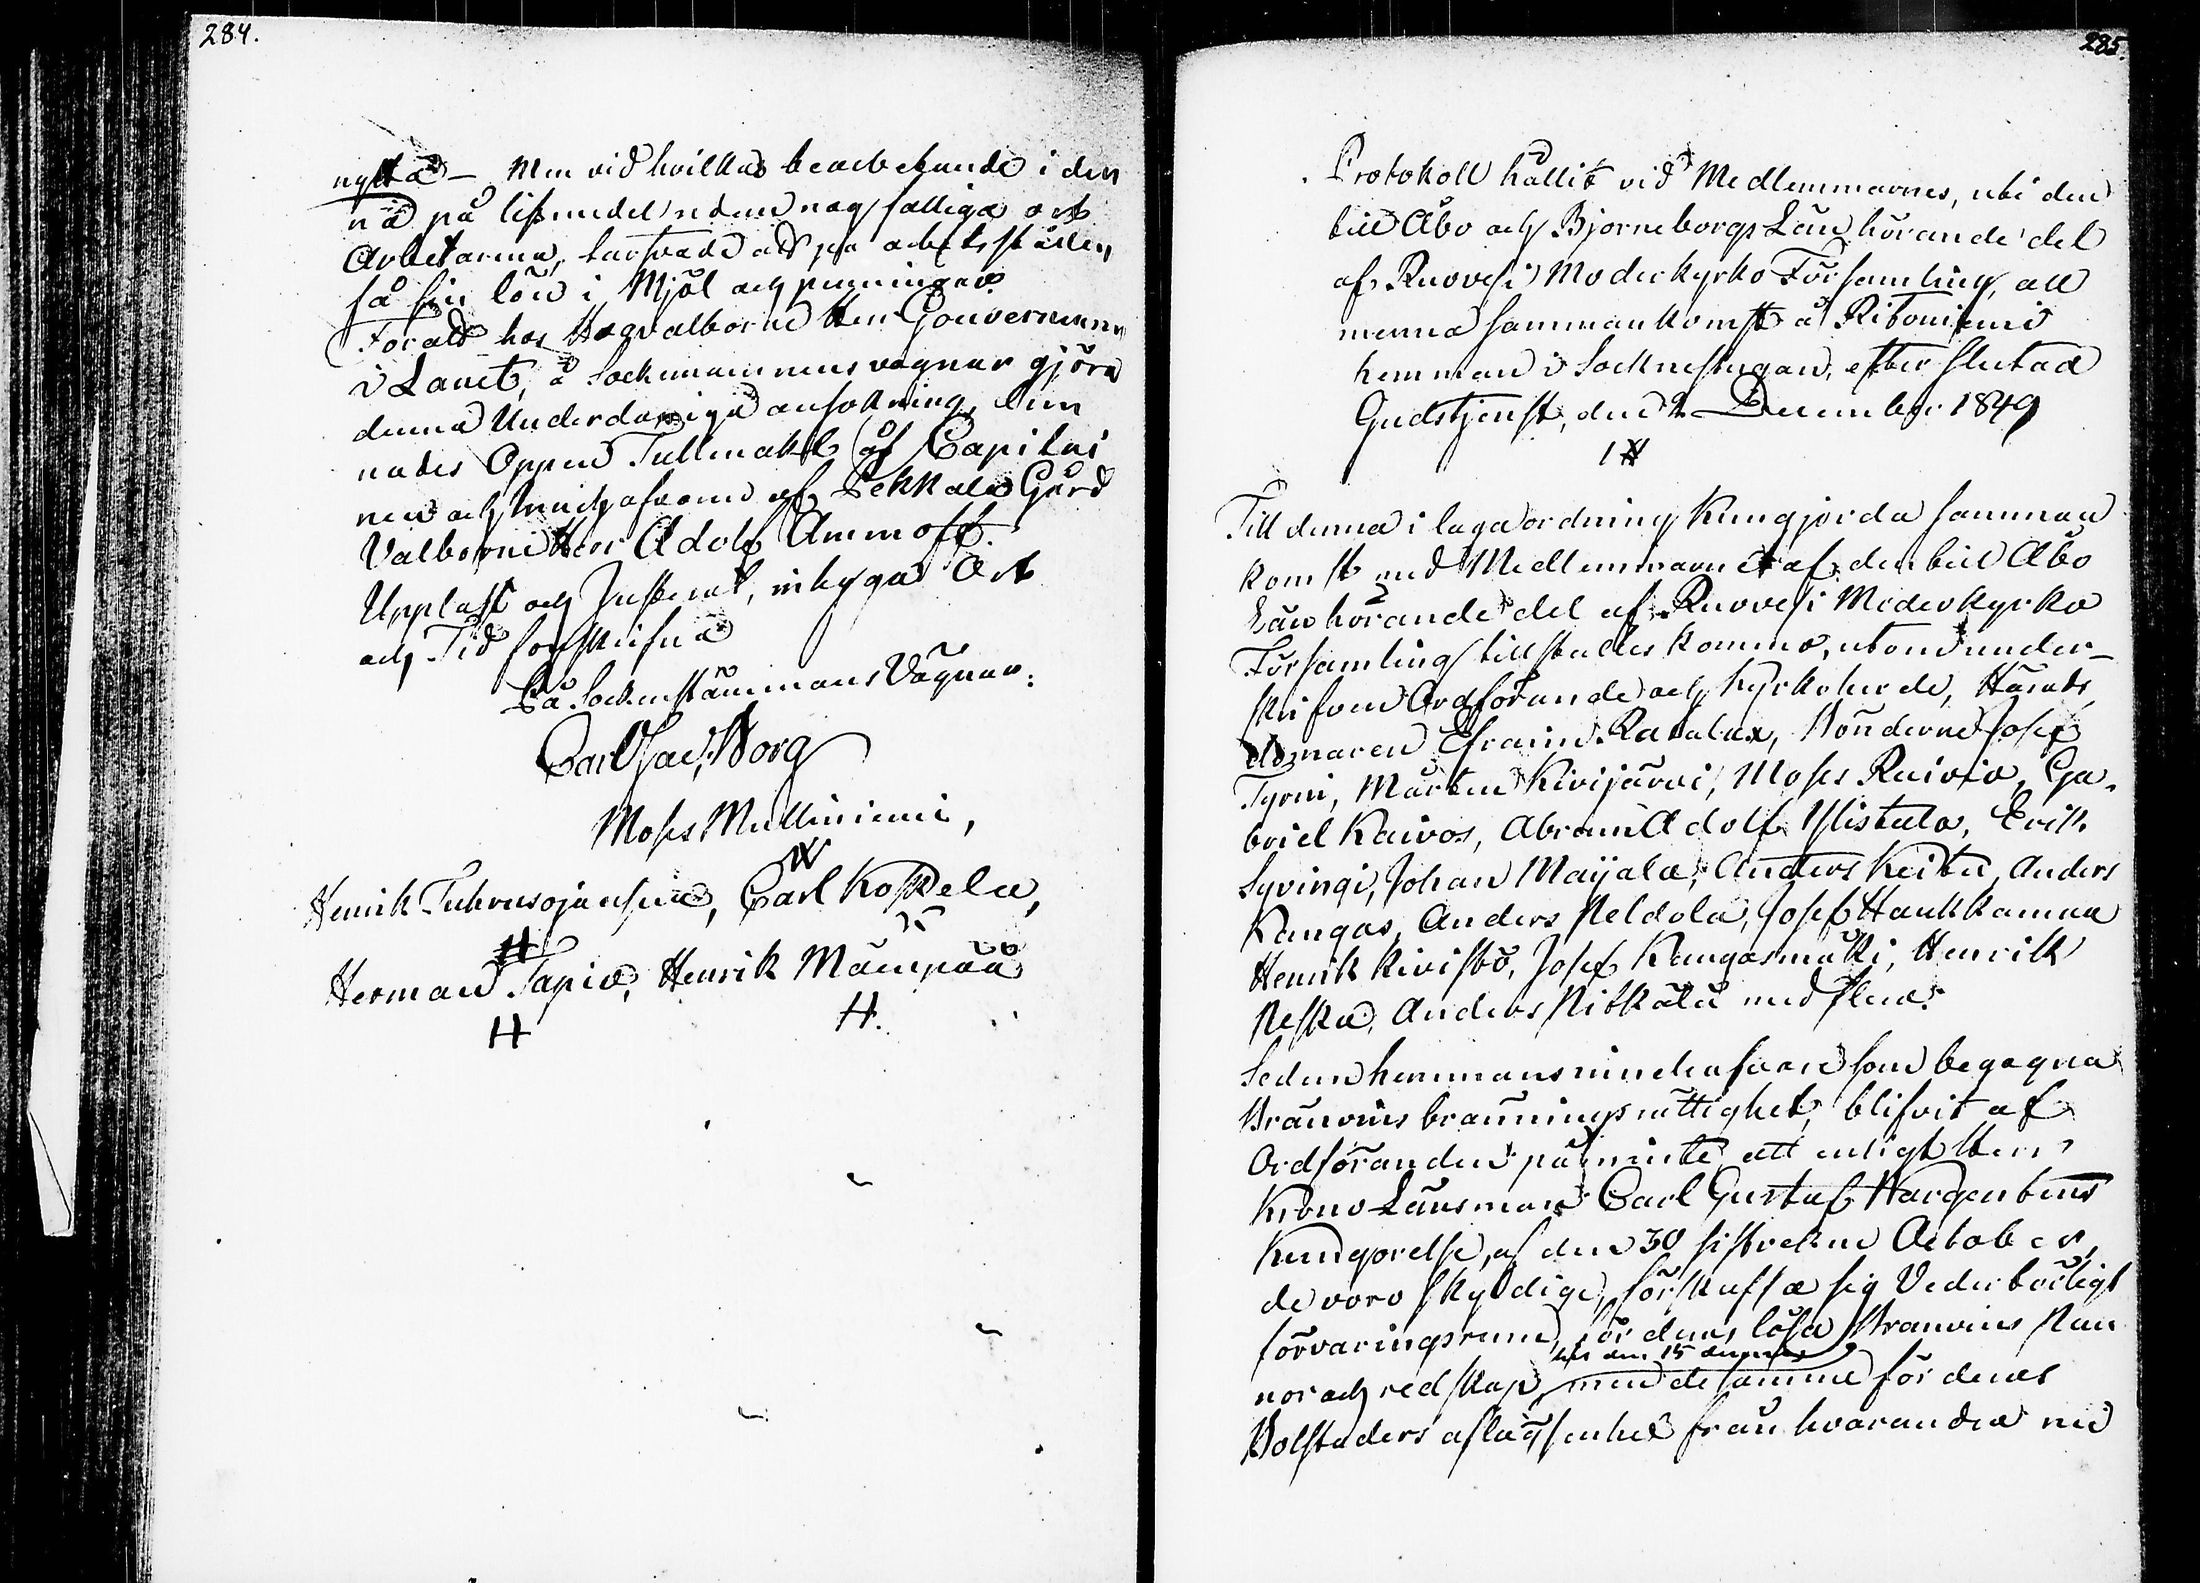 284.
nytta – Men vid hvilkas bearbetande i den
na på lifsmedel utom nog fattiga ort
Arbetarna, tarfvade att på arbetsställen
få sin lön i Mjöl och penningar.
För att hos Högvälborne Herr Gouverneuren
i Länet, å Sockenmännens vägnar göra
denna Underdåniga ansökning, läm
nades Öppen Fullmakt åt Capitai
nen och Innehafvaren af Pekkala Gård
Välborne Herr Adolf Aminoff.
Uppläst och Justerat, inbygas Ort
och Tid forskrifna
På Sockenstämmans Vägnar:
Carl Isac Borg
Moses Mulliniemi,
Henrik Tuhrusojansuu, Carl Koskela,
Herman Tapio, Henrik Mäenpää
H H.
285.
Protokoll hållit vid Medlemmarnes, uti den
till Åbo och Björneborgs Län hörande del
af Ruovesi Moderkyrko Församling, all
menna sammankomst å Ritoniemi
hemman i Socknestugan, efter slutad
Gudstjenst, den 2 December 1849
1 §
Till denna i laga ordning kungjorda samman
komst med Medlemmarne af den till Åbo
Län hörande del af Ruovesi Moderkyrko
Församling tillstädes kommo, utom under–
skrifven Ordförande och Kyrkoherde, Härads
domaren Efraim Ratalax, Bönderne Josef
Tyrni, Mårten Kivijärvi, Moses Ruivio, Ga-
briel Kaivos, Abram Adolf Ylistalo, Erik
Syvingi, Johan Maijala, Anders Keitu, Anders
Kangas, Anders Peldola, Josef Haukkamaa
Henrik Kivistö, Josef Kangasmäki, Henrik
Neska, Anders Pitkälä med flera.
Sedan hemmansinnehafvare som begagna
Bränvins bränningsrättighet, blifvit af
Ordföranden påminte att enligt Herr
Krono Länsman Carl Gustaf Hargentins
Kungörelse, af den 30 sistvekne October,
de voro skyldige, förskaffa sig Vederbörligt
förvaringsrum, för deras lösa Bränvins Pan
till den 15 dennes
nor och redskap, men desamme för deras
Bolstaders aflägsenhet från hvarandra med